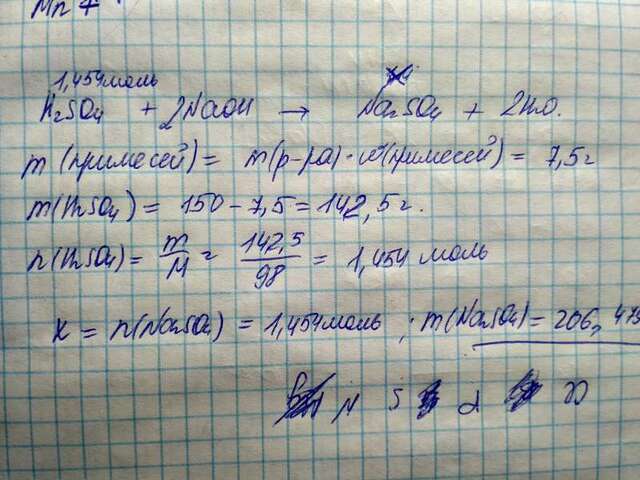 Mn +
1,454 моль
H2SO4 + 2NaOH → Na2SO4 + 2H2O.
m(примесей) = m(р-ра) · ω(примесей) = 7,5 г
m(H2SO4) = 150 - 7,5 = 142,5 г.
n(H2SO4) = m/M = 142,5/98 = 1,454 моль
x = n(Na2SO4) = 1,454 моль ; m(Na2SO4) = 206,47